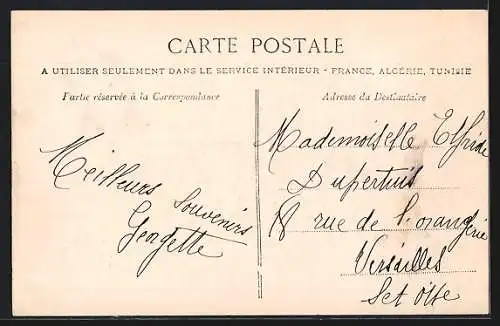 CARTE POSTALE
A UTILISER SEULEMENT DANS LE SERVICE INTÉRIEUR - FRANCE, ALGÉRIE, TUNISIE
Partie réservée à la Correspondance
Meilleurs Souvenirs
Georgette
Adresse du Destinataire
Mademoiselle Elfride
Dupertuis
8 rue de l'orangerie
Versailles
Set Oise